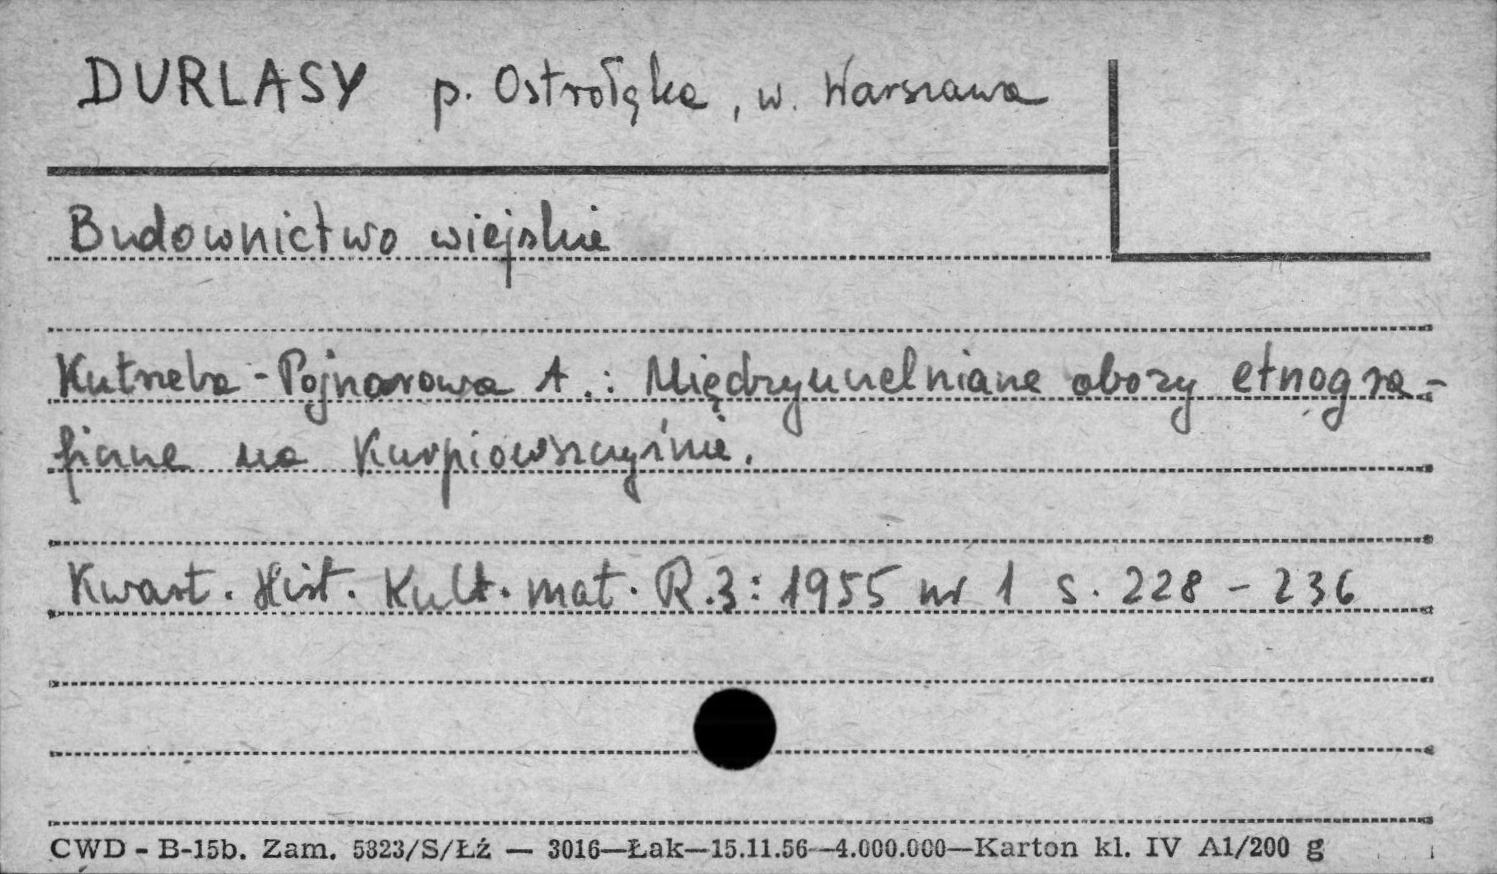 DURLASY p. Ostrołęka, w. Warszawa
Budownictwo wiejskie
Kutrzeba-Pojnarowa A.: Międzyuczelniane obozy etnogra-
ficzne na Kurpiowszczyźnie.
Kwart. Hist. Kult. mat. R.3: 1955 nr 1 s. 228 - 236
CWD - B-15b. Zam. 5323/S/Łź — 3016—Łak—15.11.56—4.000.000—Karton kl. IV A1/200 g